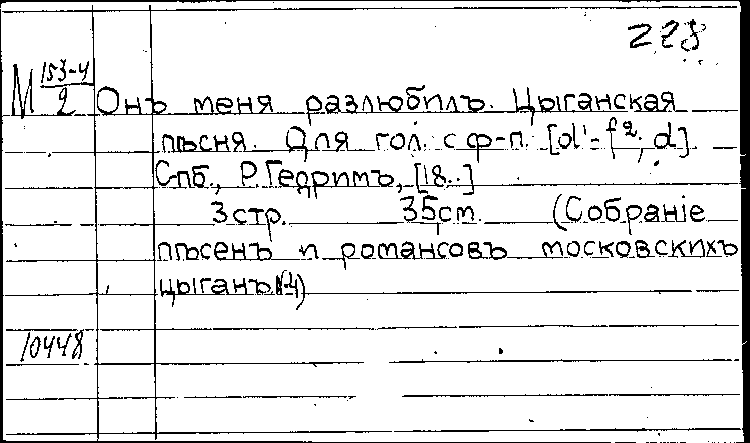 228
М 153-4/2 Онъ меня разлюбилъ. Цыганская
пѣсня. Для гол. с ф-п. [d'-f², d].
Спб., Р. Гедримъ, [18..]
3 стр. 35 cm. (Собранiе
пѣсенъ и романсовъ московскихъ
цыганъ №4)
10448